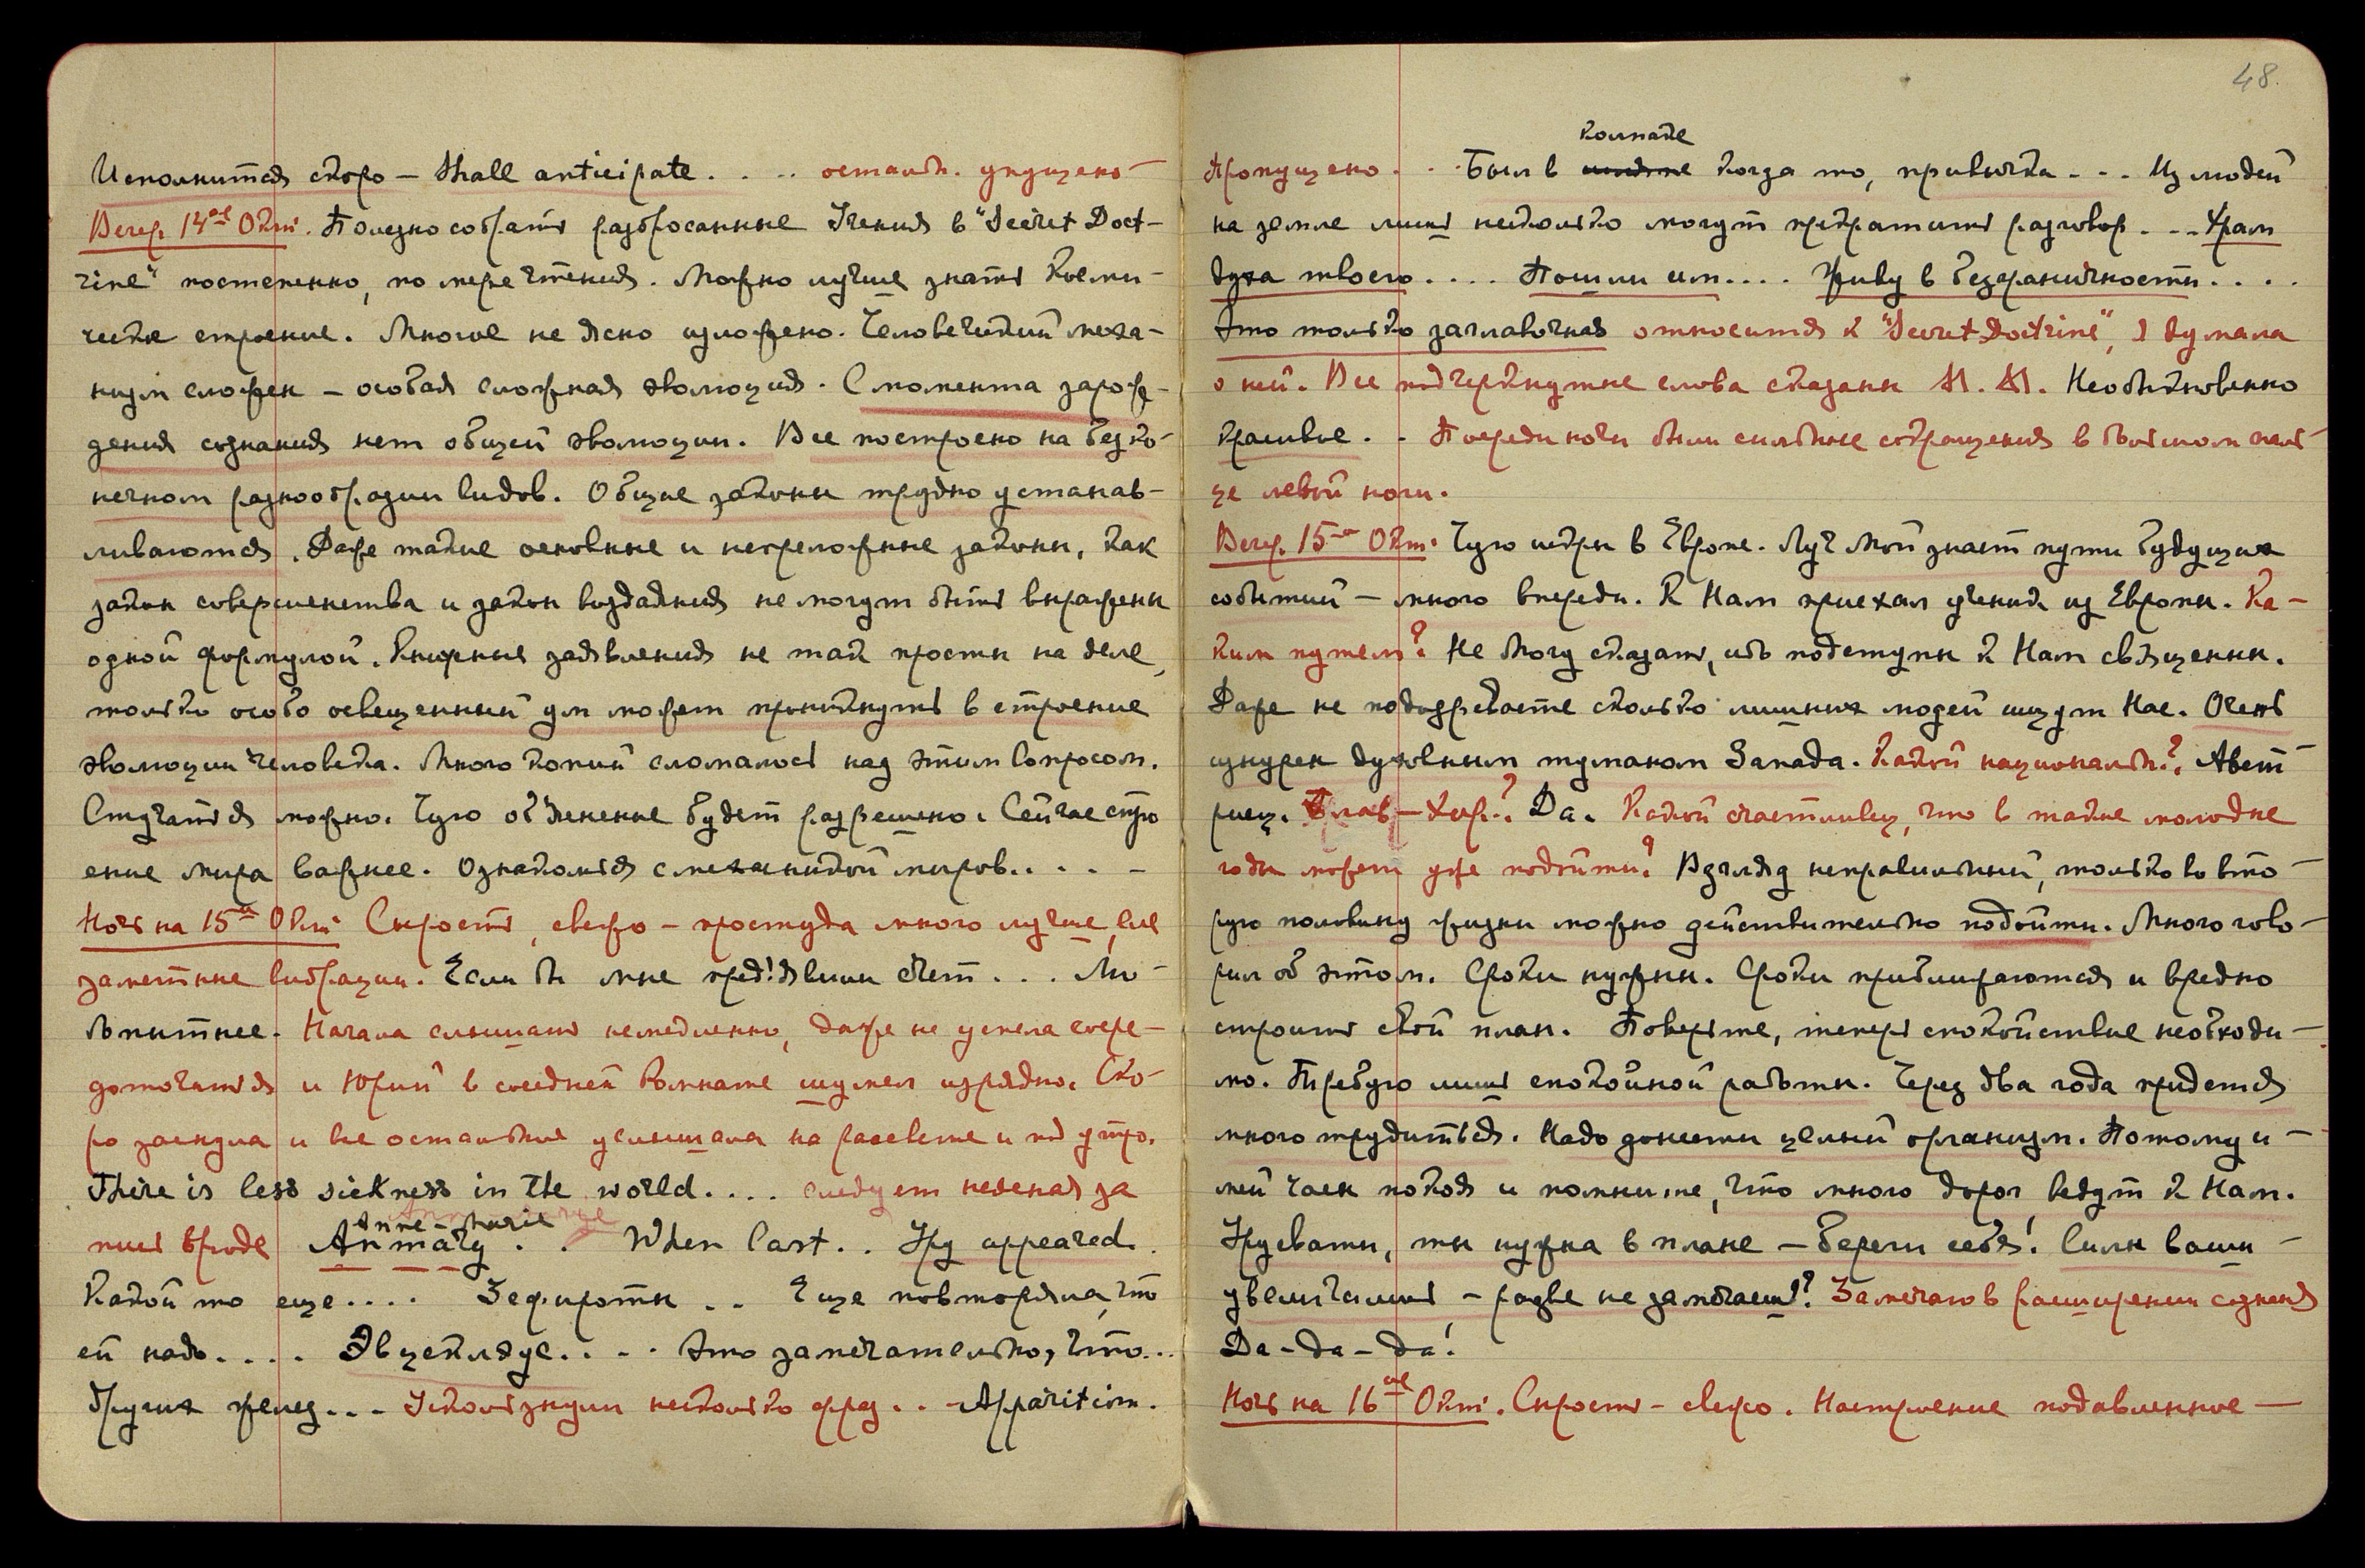 Исполнится скоро – Shall anticipate. . .. остальн. упущено –
Вечер. 14ое Окт. Полезно собрать разбросанные Учения в "Secret Doct-
rine" постепенно, по мере чтения. Можно лучше знать Косми-
ческое строение. Многое не ясно изложено. Человеческий меха-
низм сложен – особая сложная эволюция. С момента зарож-
дения сознания нет общей эволюции. Все построено на беско-
нечном разнообразии видов. Общие законы трудно устанав-
ливаются. Даже такие основные и непреложные законы, как
закон совершенства и закон воздаяния не могут быть выражены
одной формулой. Книжные заявления не так просты на деле,
только особо освещенный ум может проникнуть в строение
эволюции человека. Много копий сломалось над этим вопросом.
Стучаться можно. Чую об'яснение будет разрешено. Сейчас стро
ение мира важнее. Ознакомься с механикой миров. . . . –
Ночь на 15ое Окт. Сырость, свежо – простуда много лучше, все
заметные вибрации. Если бы мне пред'явили счет . . . Лю-
бопытнее. Начала слышать немедленно, даже не успела сосре-
доточиться и Юрий в соседней комнате шумел изрядно. Ско-
ро заснула и все остальные услышала на рассвете и под утро.
There is less sickness in the world. . . . следует неясная за
Anne-Marie
пись вроде Anmary . . When last . . Уру appeared.
Какой то еще . . . . Зефироты . . Еще повторяла, что
ей надо. . . . . Это замечательно, что...
Других желез. . . Ускользнули несколько фраз . . Apparition.
48.
комнате
Пропущено. . Был в когда то, привычка . . . Из людей
на земле лишь несколько могут прекратить разговор. . .. Храм
духа твоего. . . . Пошли им. . . . Живу в безграничности. . . .
Это только заглавочная относится к "Secret Doctrine", я думала
о ней. Все подчеркнутые слова сказаны М. М. Необыкновенно
красивые. . Посреди ночи были сильные сокращения в большом паль-
це левой ноги.
Вечер. 15ое Окт. Чую искры в Европе. Луч Мой знает пути будущих
событий – много впереди. К Нам приехал ученик из Европы. Ка-
ким путем? Не могу сказать, ибо подступы к Нам священны.
Даже не подозреваете сколько лишних людей ищут Нас. Очень
изнурен духовным туманом Запада. Какой национальн.? Авст-
риец. ? Да. Какой счастливец, что в такие молодые
годы может уже подойти? Взгляд неправильный, только во вто-
рую половину жизни можно действительно подойти. Много гово-
рил об этом. Сроки нужны. Сроки приближаются и вредно
строить свой план. Поверьте, теперь спокойствие необходи-
мо. Требую лишь спокойной работы. Через два года придется
много трудиться. Надо донести целый организм. Потому и-
мей часы покоя и помните, что много дорог ведут к Нам.
Урусвати, ты нужна в плане – береги себя! Силы ваши –
увеличились – разве не замечаешь? Замечаю в расширении сознания
Да – да – да!
Ночь на 16ое Окт. Сырость – свежо. Настроение подавленное –